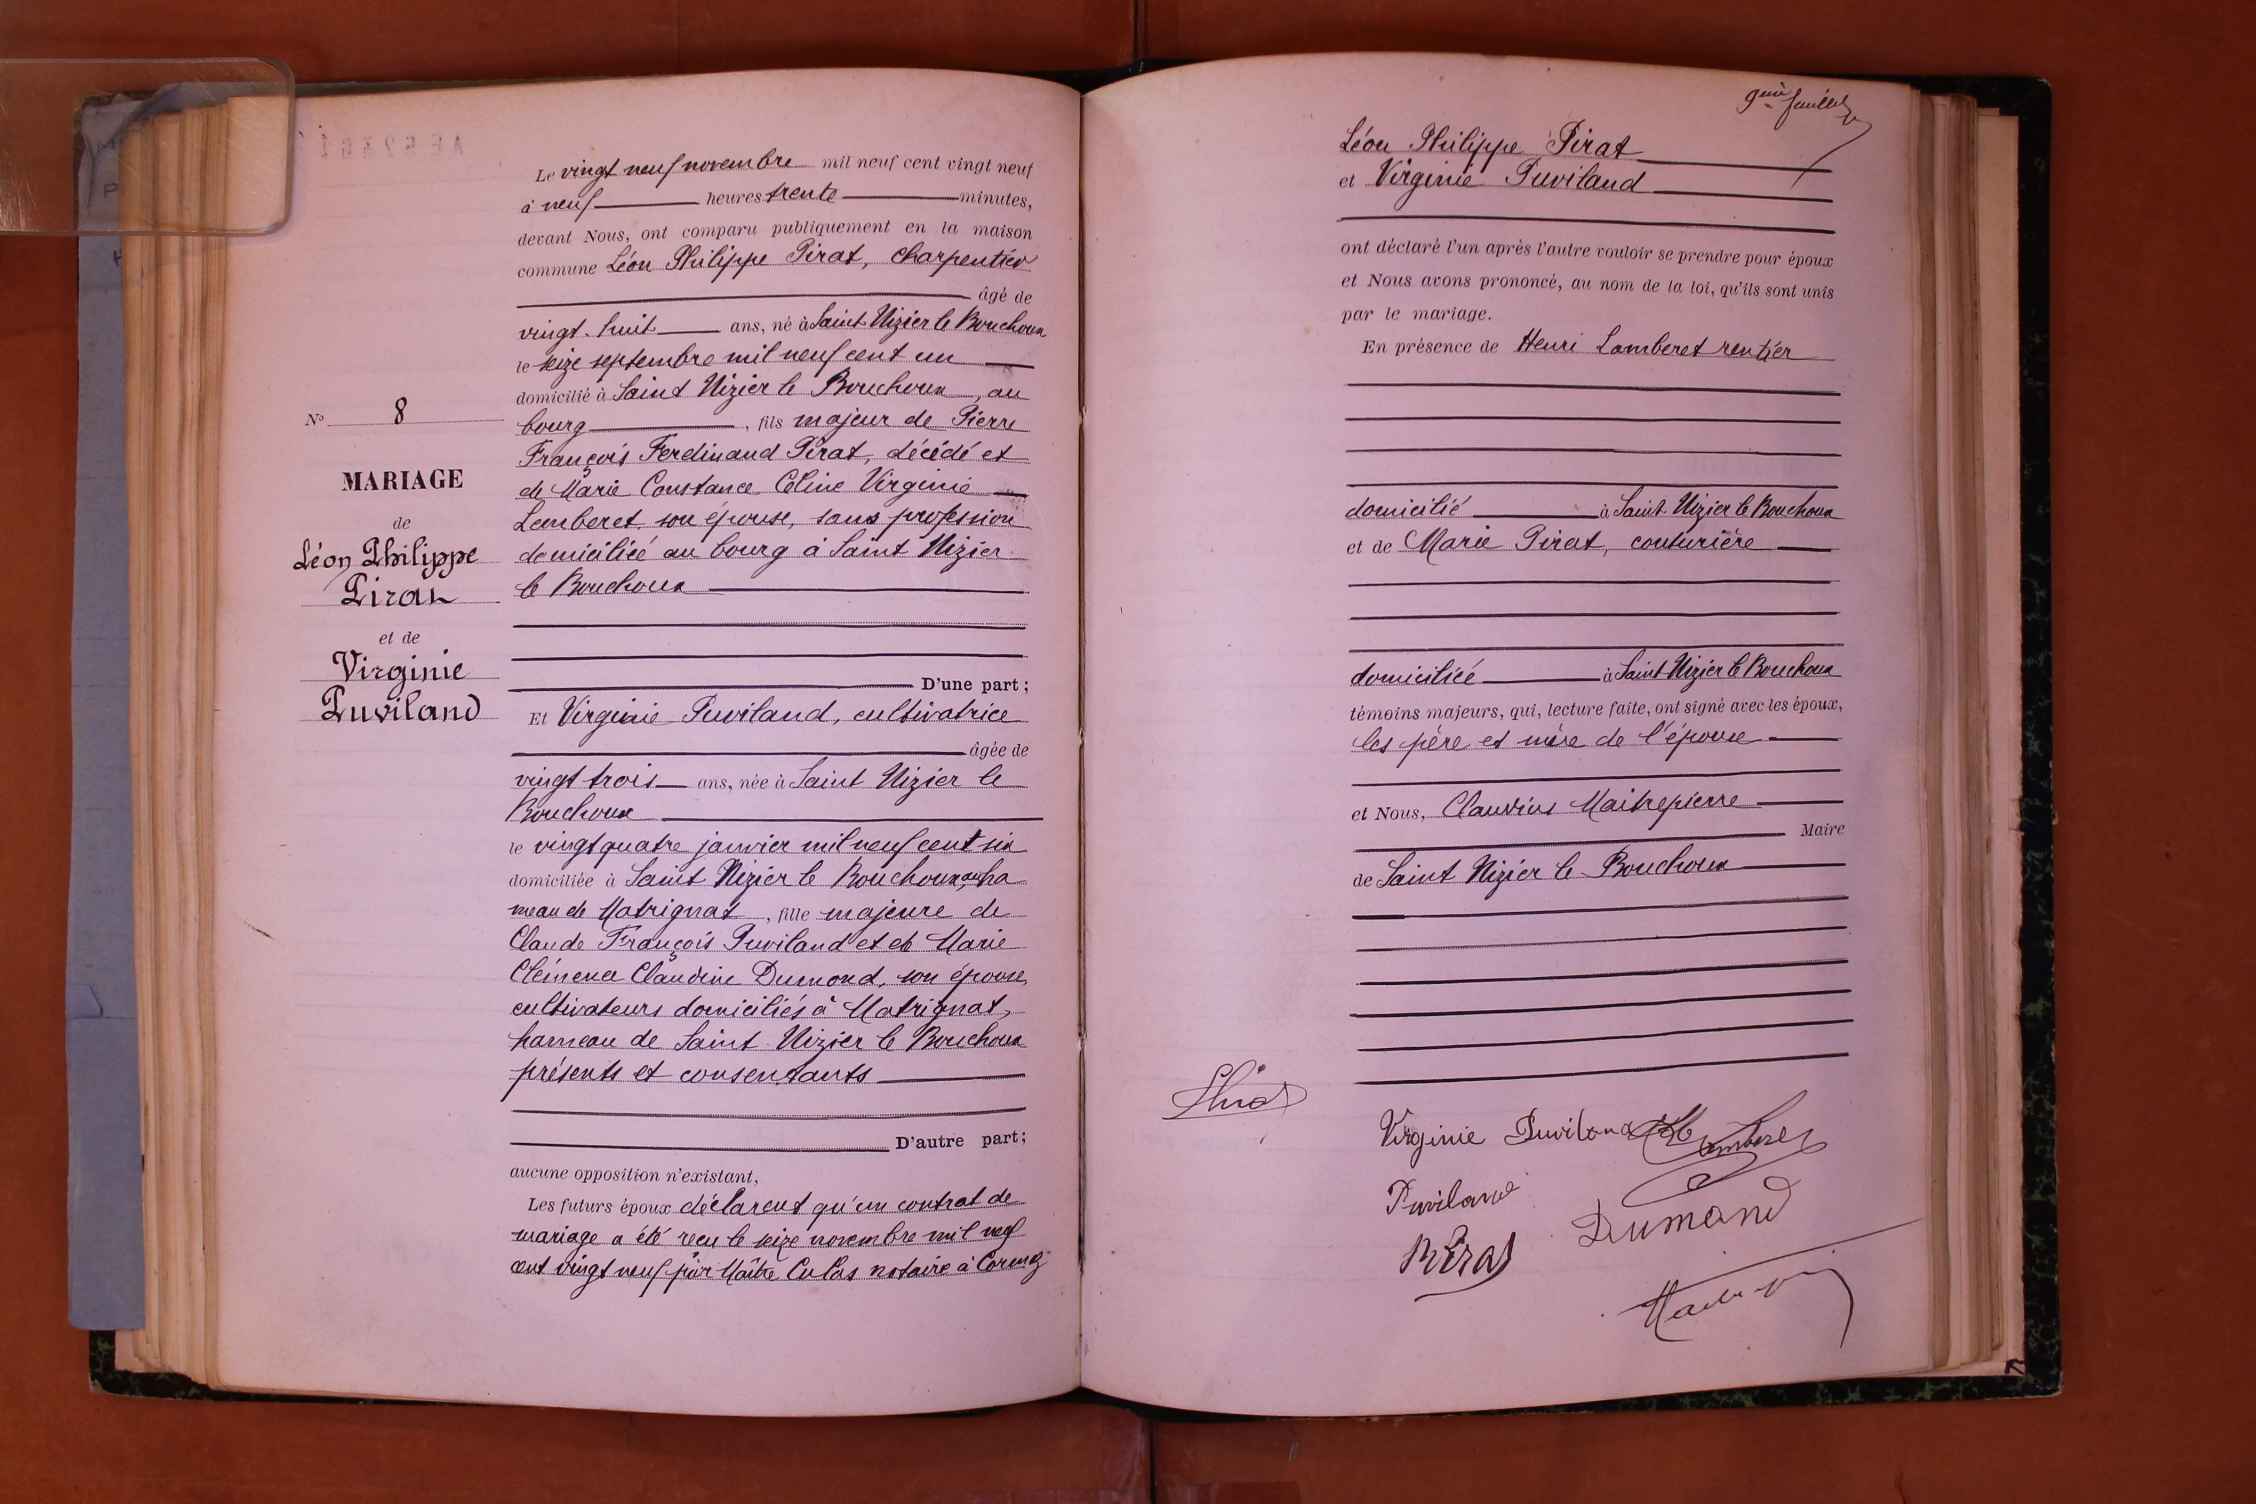 N° 8
MARIAGE
de
Léon Philippe
Pirat
et de
Virginie
Puviland
Le vingt neuf novembre mil neuf cent vingt neuf
à neuf heures trente minutes,
devant Nous, ont comparu publiquement en la maison
commune Léon Philippe Pirat, charpentier
âgé de
vingt-huit ans, né à Saint Nizier le Bouchoux
le seize septembre mil neuf cent un
domicilié à Saint Nizier le Bouchoux, au
bourg, fils majeur de Pierre
François Ferdinand Pirat, décédé et
de Marie Constance Céline Virginie
Lamberet son épouse, sans profession
domiciliée au bourg à Saint Nizier
le Bouchoux
D'une part;
Et Virginie Puviland, cultivatrice
âgée de
vingt trois ans, née à Saint Nizier le
Bouchoux
le vingt quatre janvier mil neuf cent six
domiciliée à Saint Nizier le Bouchoux, au ha
meau de Matrignat, fille majeure de
Claude François Puviland et de Marie
Clémence Claudine Dumond, son épouse,
cultivateurs domiciliés à Matrignat,
hameau de Saint Nizier le Bouchoux
présents et consentants
D'autre part;
aucune opposition n'existant,
Les futurs époux déclarent qu'un contrat de
mariage a été reçu le seize novembre mil neuf
cent vingt neuf par Maître Culas notaire à Cormoz
9eme feuillet
Léon Philippe Pirat
et Virginie Puviland
ont déclaré l'un après l'autre vouloir se prendre pour époux
et Nous avons prononcé, au nom de la loi, qu'ils sont unis
par le mariage.
En présence de Henri Lamberet rentier
domicilié à Saint-Nizier le Bouchoux
et de Marie Pirat, couturière
domiciliée à Saint-Nizier le Bouchoux
témoins majeurs, qui, lecture faite, ont signé avec les époux,
les père et mère de l'épouse
et Nous, Claudius Maitrepierre
Maire
de Saint Nizier le Bouchoux
Virginie Puviland Lamberet
Puviland
Dumond
Pirat